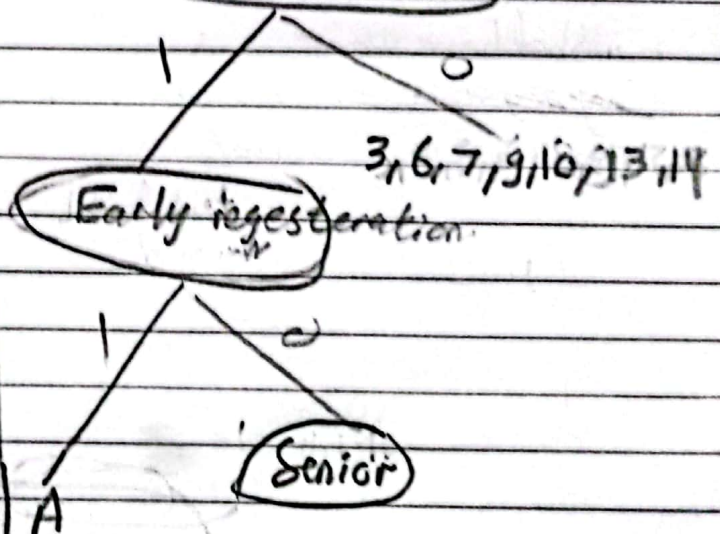 1
0
3,6,7,9,10,13,14
Early regesteration
1
0
Senior
A